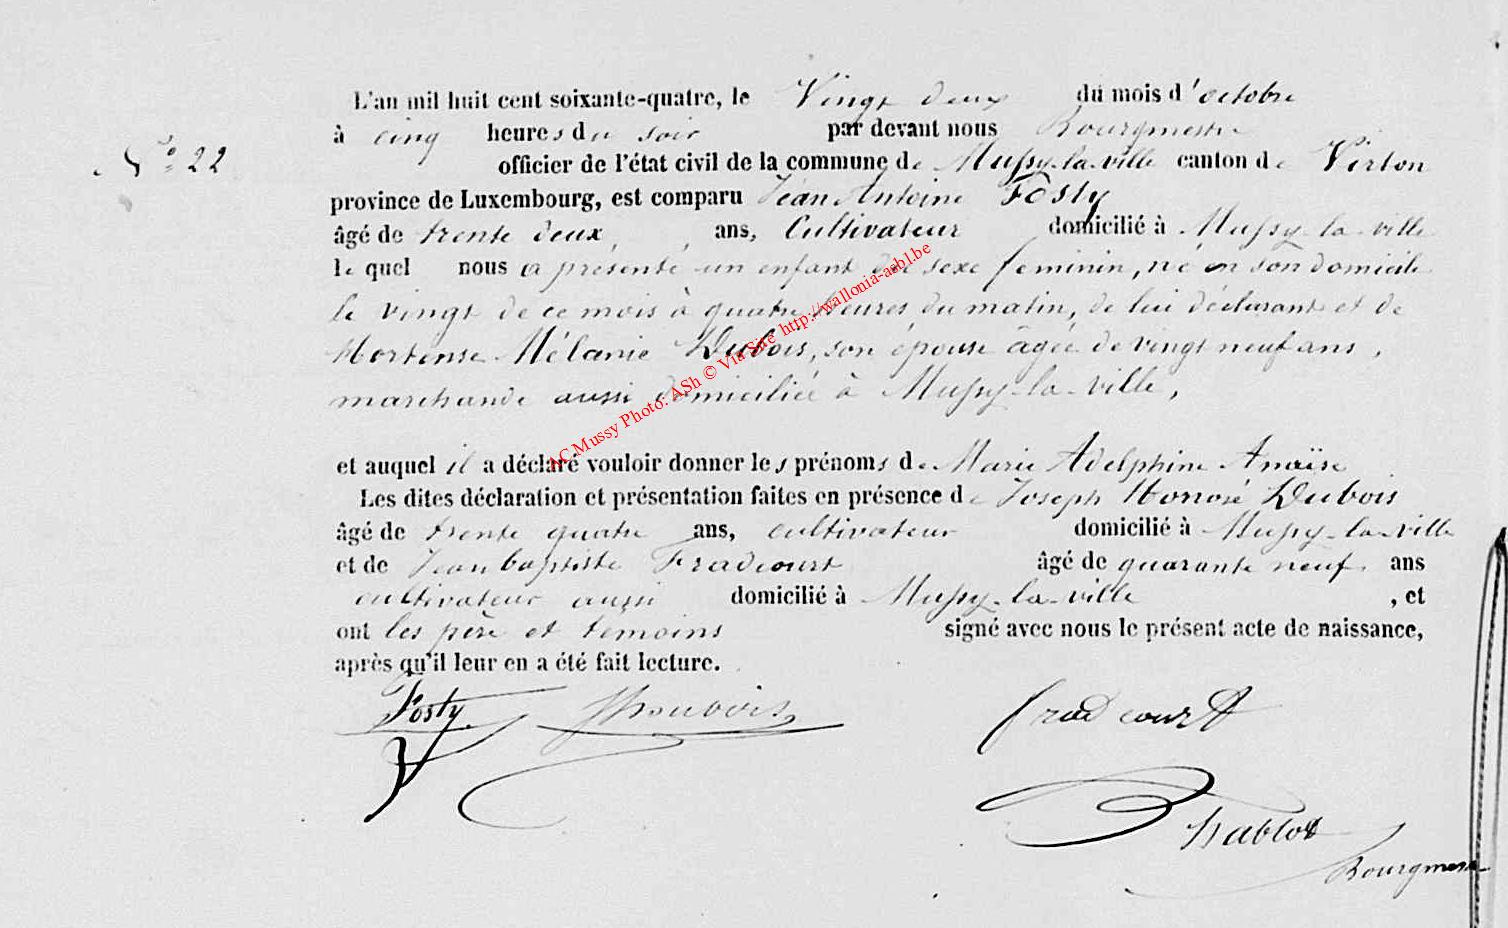 L'an mil huit cent soixante-quatre, le Vingt deux du mois d'octobre
à cinq heures du soir par devant nous Bourgmestre
N° 22
officier de l'état civil de la commune de Mussy-la-ville canton de Virton
province de Luxembourg, est comparu Jean Antoine Fosty
âgé de trente deux, ans, Cultivateur domicilié à Mussy-la-ville
lequel nous a présenté un enfant du sexe feminin, né en son domicile
le vingt de ce mois à quatre heures du matin, de lui déclarant et de
Hortense Mélanie Dubois, son épouse âgée de vingt neuf ans,
marchande aussi domiciliée à Mussy-la-ville,
AC Mussy Photo: ASh © Via Site http://wallonia-asbl.be
et auquel il a déclaré vouloir donner les prénoms de Marie Adelphine Anaïse
Les dites déclaration et présentation faites en présence de Joseph Honoré Dubois
âgé de trente quatre ans, cultivateur domicilié à Mussy-la-ville
et de Jean baptiste Fradcourt âgé de quarante neuf ans
cultivateur aussi domicilié à Mussy-la-ville, et
ont les père et temoins signé avec nous le présent acte de naissance,
après qu'il leur en a été fait lecture.
Fosty fradcourt
Bourgmes